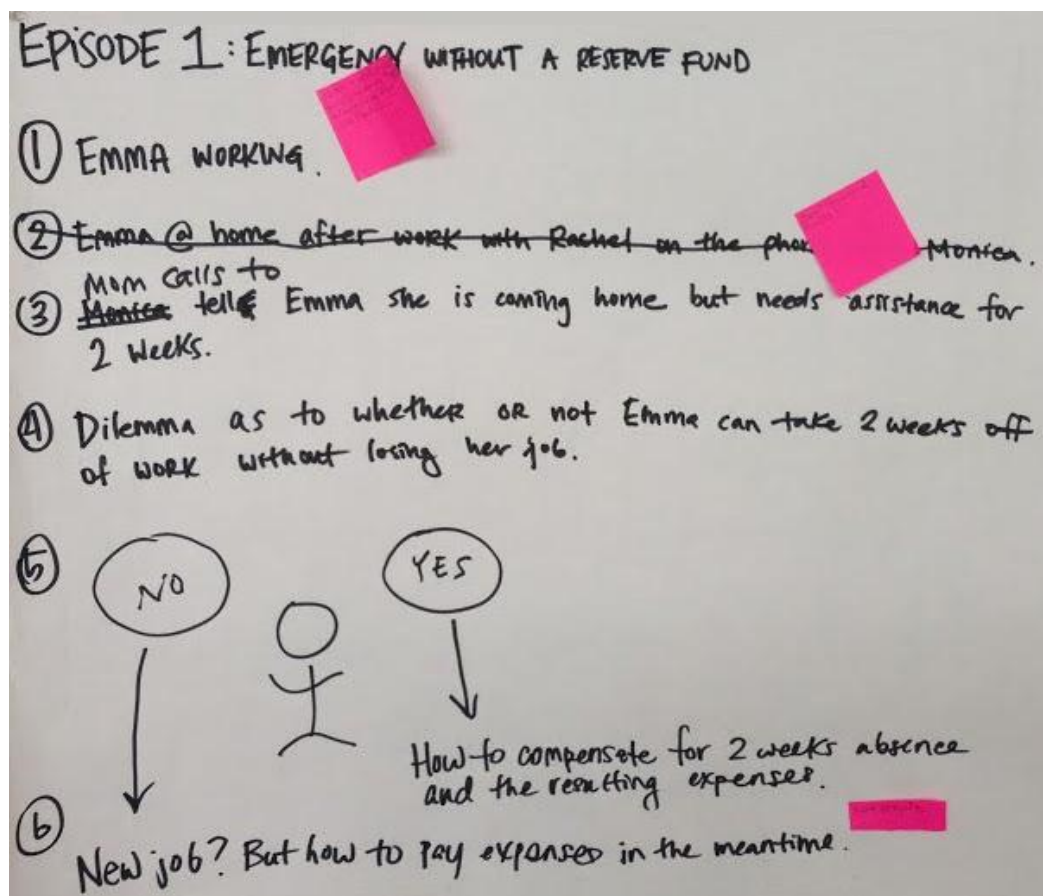 EPISODE 1: EMERGENCY WITHOUT A RESERVE FUND
① EMMA WORKING.
② Emma @ home after work with Rachel on the phon Monica.
Mom calls to
③ Monica tells Emma she is coming home but needs assistance for
2 weeks.
④ Dilemma as to whether OR not Emma can take 2 weeks off
of work without losing her job.
⑤ NO YES
How to compensate for 2 weeks absence
and the resulting expenses.
⑥ New job? But how to pay expenses in the meantime.